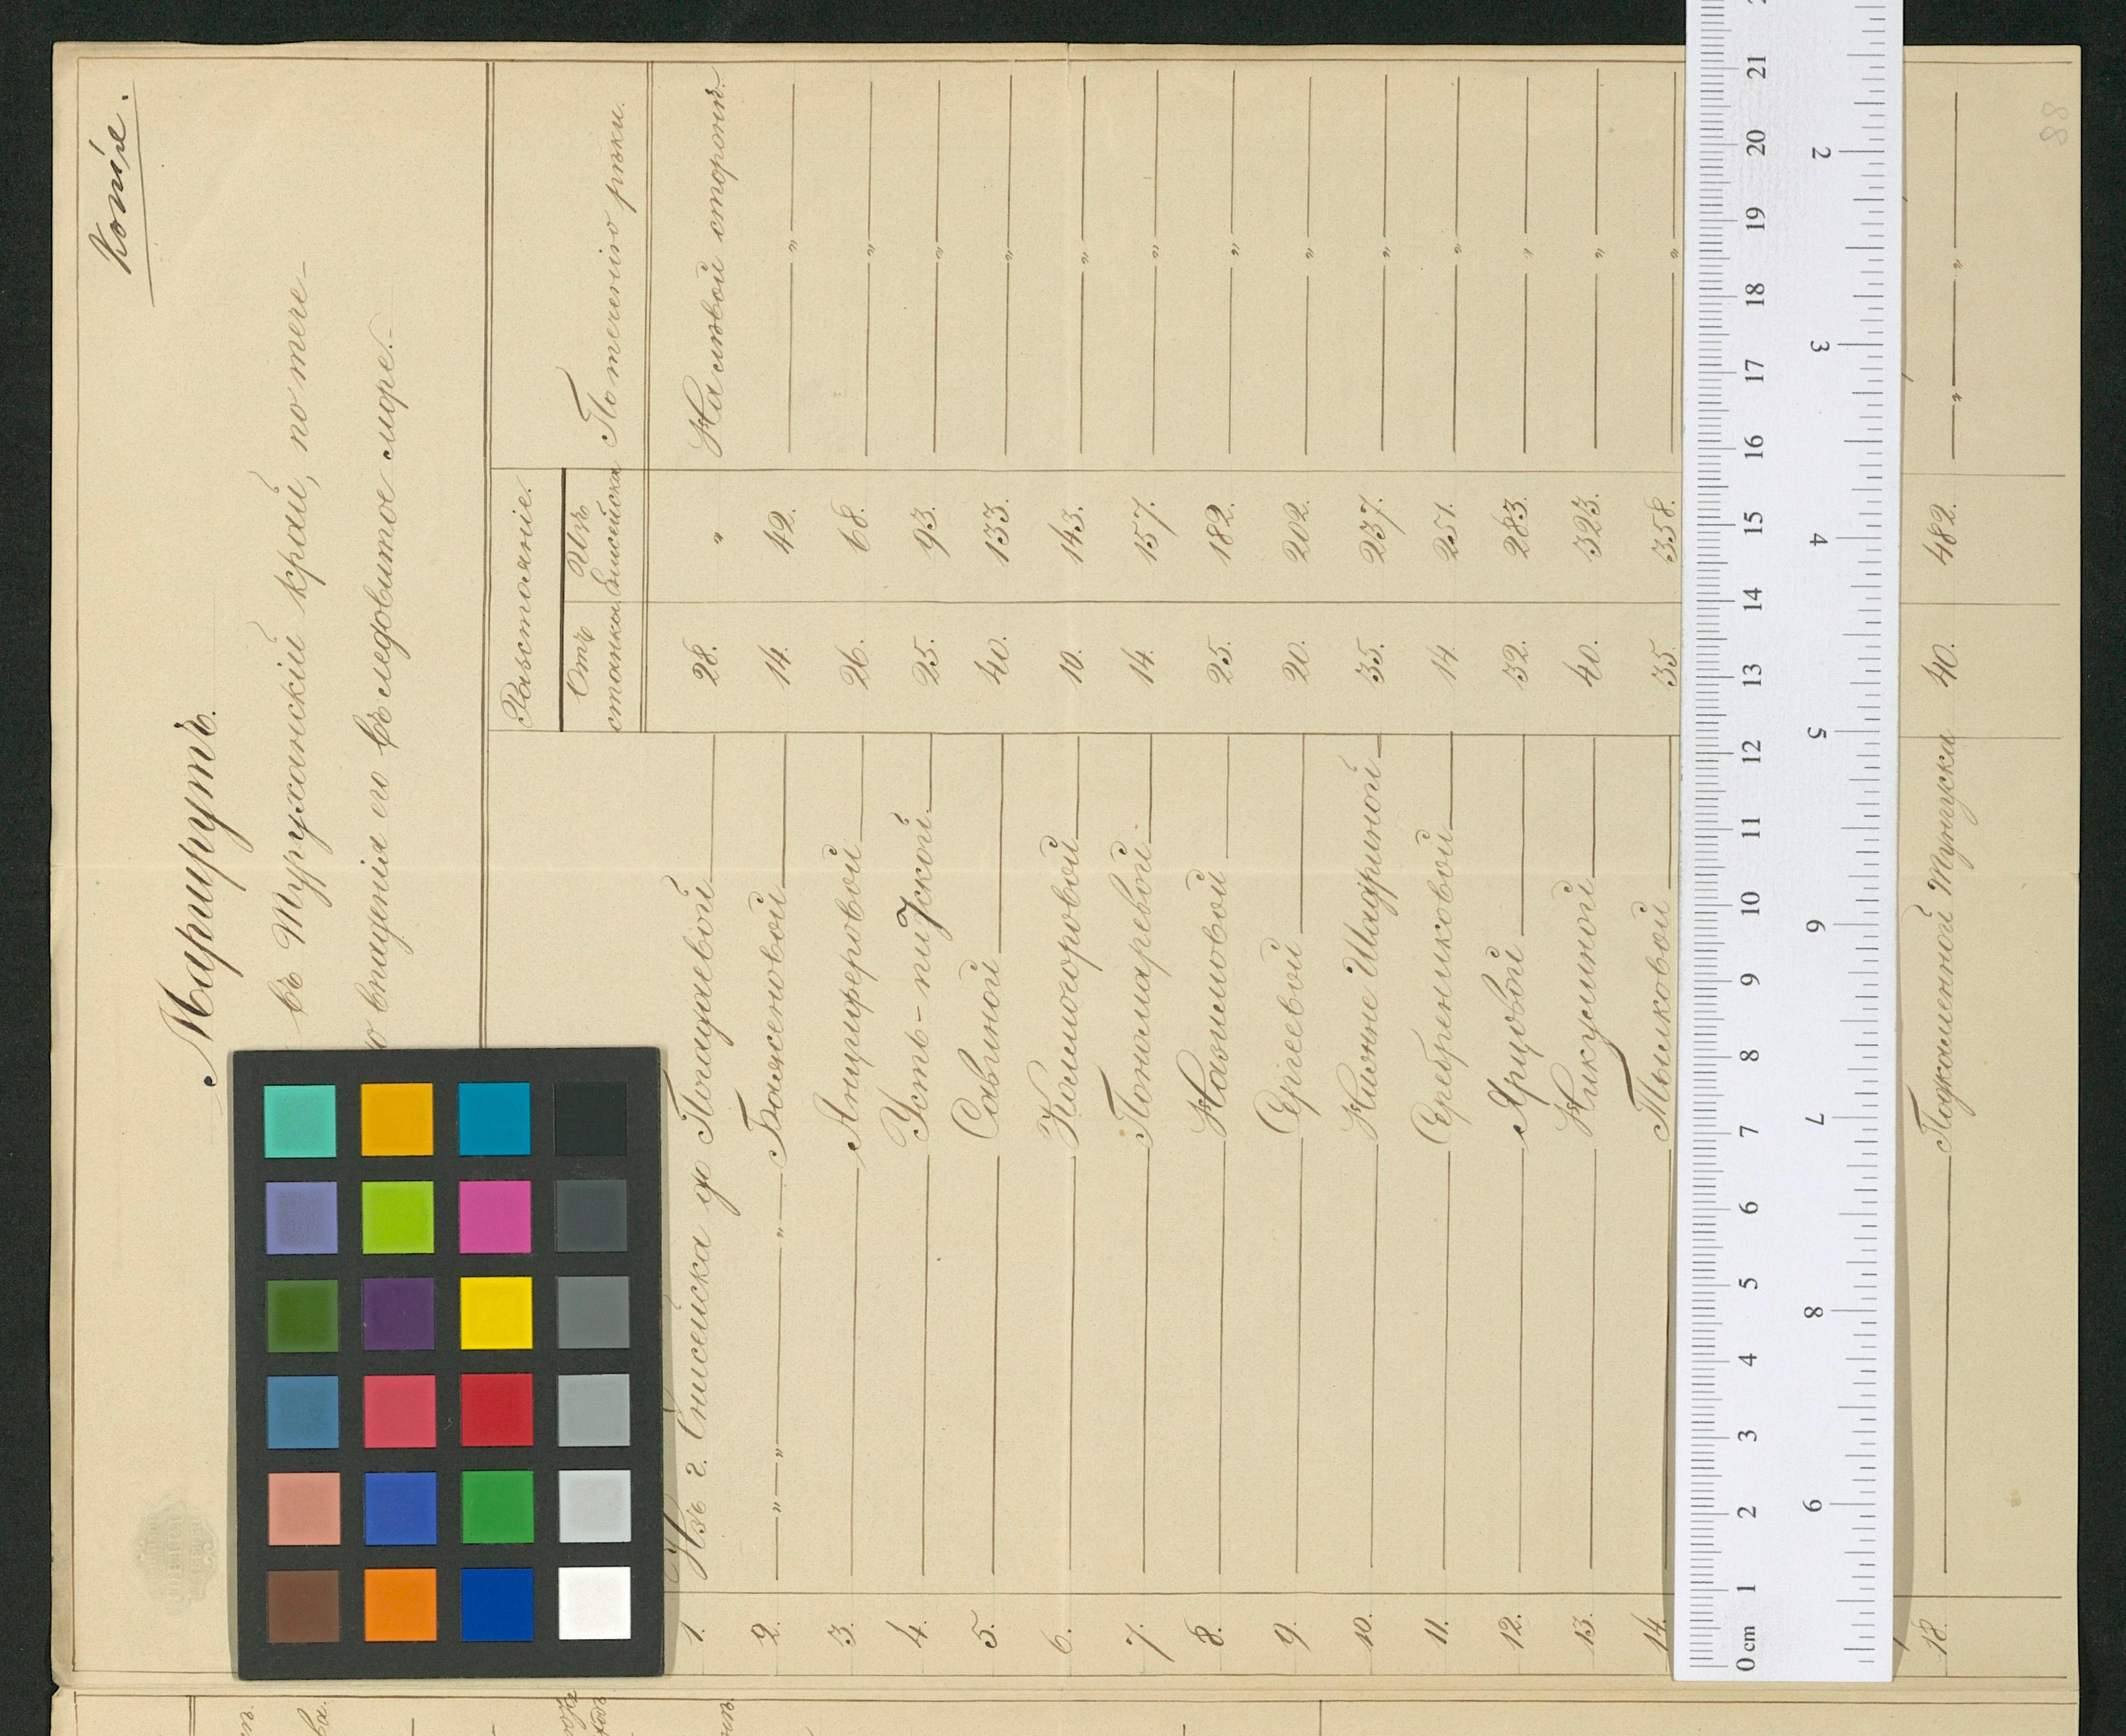 Копія.
Маршрутъ.
въ Туруханскій край, по тече-
впаденія его въ ледовитое море.
Разстояніе.
Отъ станка. Изъ Енисейска По теченію рѣки.
1. Изъ г. Енисейска до Почадаевой 28. „ На лѣвой сторонѣ.
2. „ „ „ Баженовой 14. 42. „
3. Анциферовой 26. 68. „
4. Усть-питской 25. 93. „
5. Савиной 40. 133. „
6. Колмогоровой 10. 143. „
7. Пономаревой 14. 157. „
8. Назимовой 25. 182. „
9. Сергеевой 20. 202. „
10. Нижне Шадриной 35. 237. „
11. Серебрениковой 14. 251. „
12. Ярцовой 32. 283. „
13. Никулиной 40. 323. „
14. Тыиковой 35. 358. „
18. Подкаменной Тунгуски 40. 482. „ „
88
0 cm 1 2 3 4 5 6 7 8 9 10 11 12 13 14 15 16 17 18 19 20 21
2 3 4 5 6 7 8 9